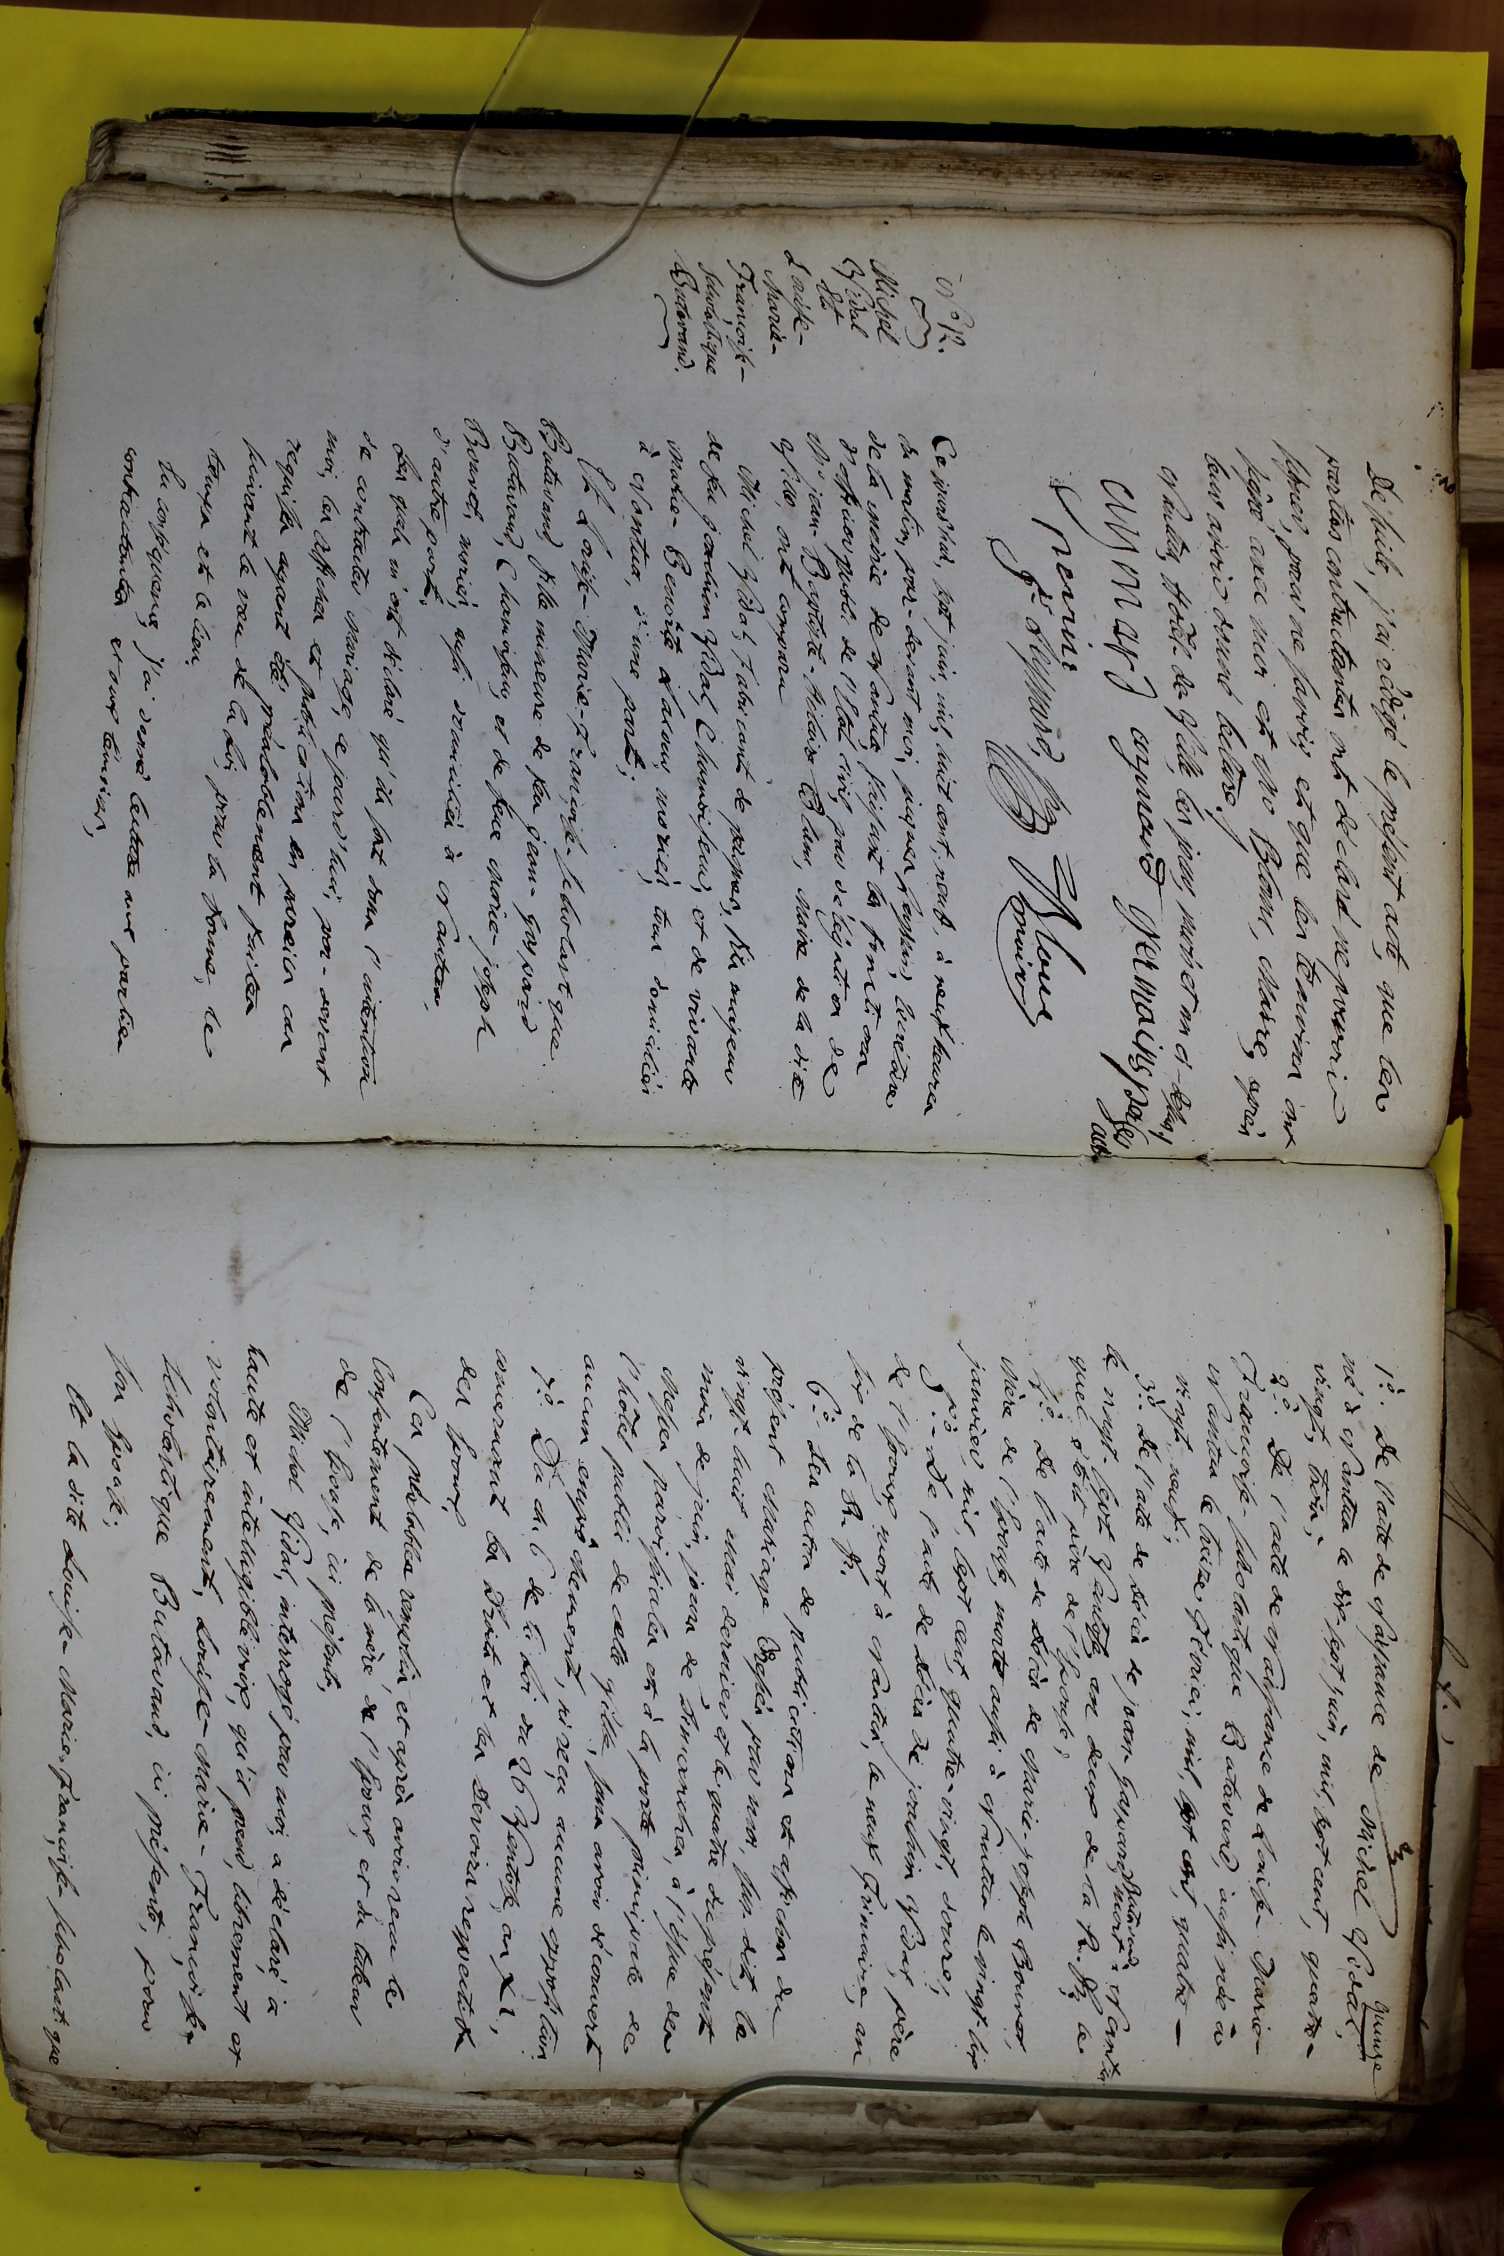 De suite, j'ai rédigé le présent acte, que les
parties contractantes ont déclaré ne pouvoir
signer, pour ne savoir et que les témoins ont
signé avec moi et Mr Blanc, Maire, après
leur avoir donné lecture.
Nantua, hôtel de Ville, les jour, mois et an ci-dessus,
aymard aymard germain
Perrin
Fs. Reymond, Blanc
maire
N.º 12.
Michel
Vidal
et
Louise-
Marie-
Françoise-
Scholastique
Butavand.
Ce jourd'hui, sept juin, mil, huit cent, neuf, à neuf heures
du matin, par-devant moi, secrétaire
de la mairie de Nantua, faisant les fonctions
d'officier public de l'état civil, par délégation de
Mr jean-Baptiste-hilaire Blanc, maire de la dite
Ville, ont comparu
Michel Vidal, fabricant de peignes, fils majeur
de feu joachim Vidal, Chamoiseur, et de vivante
Marie-Benoite mariés, tous domiciliés
à Nantua, d'une part;
Et Louise-Marie-Françoise-scholastique
Butavand, fille mineure de feu jean-gaspard
Butavand, Chamoiseur, et de feue Marie-joseph
Bouvet, mariés, aussi domiciliée à Nantua,
d'autre part.
Lesquels m'ont déclaré qu'ils sont dans l'intention
de contracter Mariage, ce jourd'hui, par-devant
moi, les affiches et publications en pareil cas
requises ayant été préalablement faites
suivant le vœu de la Loi, pour la forme, le
temps et le lieu.
En conséquence, j'ai donné lecture aux parties
contractantes et aux témoins,
quinze
1.º De l'acte de Naissance de Michel Vidal,
né à Nantua le dix sept juin, mil, sept cent, quatre-
vingt, trois;
2.º De l'acte de Naissance de Louise-Marie-
Françoise-scholastique Butavand, aussi née à
Nantua le treize février, mil, sept cent, quatre-
vingt, neuf;
3.º De l'acte de décès de jean-gaspard Butavand, mort à Nantua
le vingt-sept Ventôse, an deux de la R. f., le
quel était père de l'épouse;
4.º De l'acte de décès de Marie-joseph Bouvet,
mère de l'épouse, morte aussi à Nantua le vingt six
janvier, mil, sept cent, quatre-vingt, douze;
5.º De l'acte de décès de joachim Vidal, père
de l'époux, mort à Nantua, le neuf Frimaire, an
six de la R. f.
6.º Des actes de publications et affiches du
présent Mariage par moi, sus dit, le
vingt-huit mai dernier et le quatre du présent
mois de juin, jours de Dimanches, à l'issue des
Messes paroissiales et à la porte principale de
l'hôtel public de cette Ville, sans avoir découvert
aucun empêchement, ni reçu aucune opposition.
7.º Du ch. 6 de la loi du 26 Ventôse, an XI,
concernant les Droits et les Devoirs respectifs
des époux.
Ces préalables remplis, et après avoir reçu le
consentement de la mère de l'époux, et du tuteur
de l'épouse, ici présents,
Michel Vidal, interrogé par moi, a déclaré à
haute et intelligible voix, qu'il prend librement et
volontairement, Louise-Marie-Françoise-
scholastique Butavand, ici présente, pour
son épouse;
Et la dite Louise-Marie-Françoise-scholastique